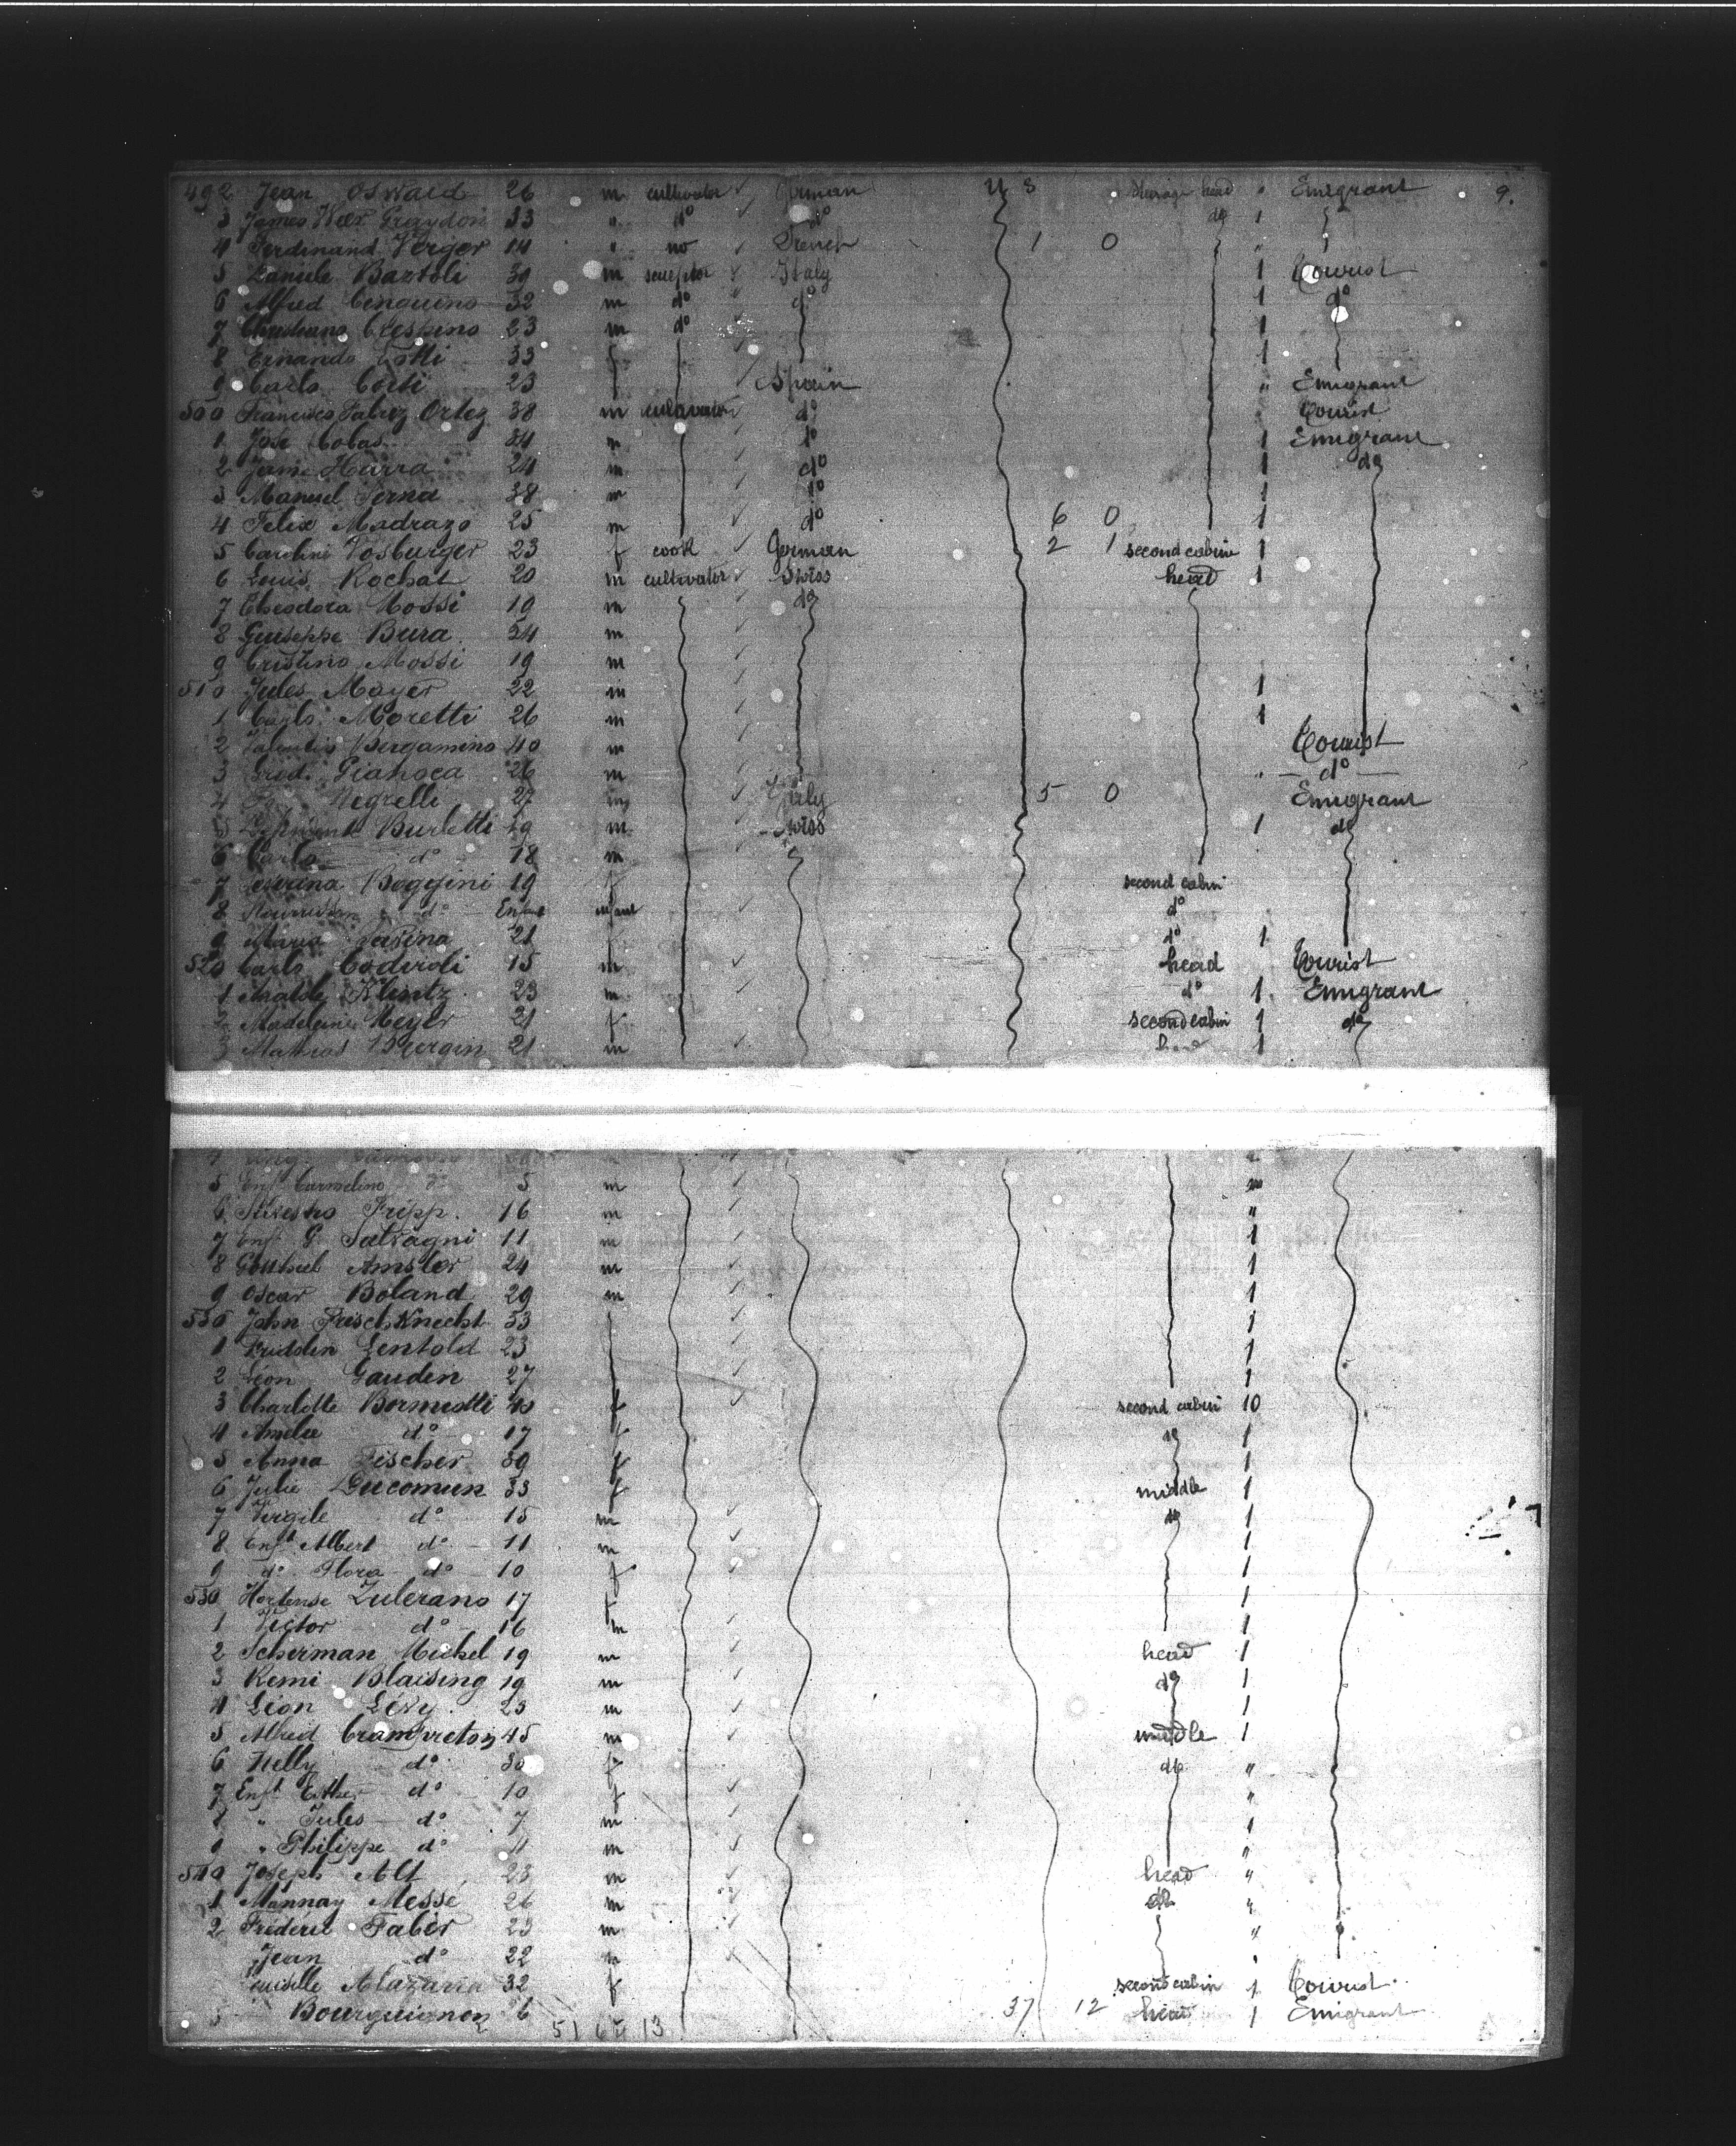 492 Jean Oswald 26 m cultivator German U S Steerage head " Emigrant 9.
3 James Weer Graydon 33 " do do do 1
4 Ferdinand Verger 14 " no French 1 0 "
5 Bartoli 30 m sculptor Italy 1 Tourist
6 Alfred Cinquino 32 m do do 1 do
7 Christiano Crespino 23 m do 1
8 Ernando Zotti 33 f 1
9 Carlo Corti 23 Spain " Emigrant
500 Francisco Ortez 38 m cultivator do Tourist
1 Jose Cobas 34 m do 1 Emigrant
2 Jame Harra 24 m do 1 do
3 Manuel Serna 38 m do 1
4 Felix Madrazo 25 m do 6 0 1
5 Carolini Vosburger 23 f cook German 2 1 second cabin 1
6 Louis Rochat 20 m cultivator Swiss head 1
7 Theodora Mossi 19 m do
8 Guiseppe Bura 24 m
9 Cristino Mossi 19 m
510 Jules Mayer 22 m 1
1 Carlo Moretti 26 m 1
2 Bergamino 40 m Tourist
3 Gianoca 26 m " do
4 Negrelli 27 m Italy 5 0 Emigrant
5 Burletti 19 m Swiss 1 do
6 Carlo do 18 m
7 Boggini 19 f second cabin
8 do Enfant infant do
9 Maria 21 f do 1
520 Carlo Coderoli 15 m head Tourist
1 Klintz 23 m do 1 Emigrant
2 Madeleine Meyer 21 f second cabin 1 do
3 21 m head 1
5 Enft Carmelino do 5 m "
6 Fripp. 16 m "
7 Enft G. Salvagni 11 m 1
8 Amsler 24 m 1
9 Oscar Boland 29 m 1
530 John Frischknecht 33 1
1 Fridolin Lentold 23 1
2 Léon Gaudin 27 1
3 Charlotte 40 f second cabin 10
4 Amelie do 17 f do 1
5 Anna Fischer 39 f 1
6 Julie Ducomun 33 f middle 1
7 Virgile do 15 m do 1
8 Enft Albert do 11 m 1
9 do Flora do 10 f 1
530 Hortense Zulerano 17 f 1
1 Victor do 16 m 1
2 Scherman Michel 19 m head 1
3 Remi Blaising 19 m do 1
4 Léon Lévy 23 m 1
5 Alfred 45 m middle 1
6 Nelly do 30 f do "
7 Enft Esther do 10 f "
8 " Jules do 7 m 1
9 " Philippe do 4 m "
540 Joseph Alt 23 m head "
1 Mannay Messe 26 m do "
2 Frederic Faber 23 m "
Jean do 22 m "
32 f second cabin 1 Tourist
Bourguignon 6 37 12 head 1 Emigrant